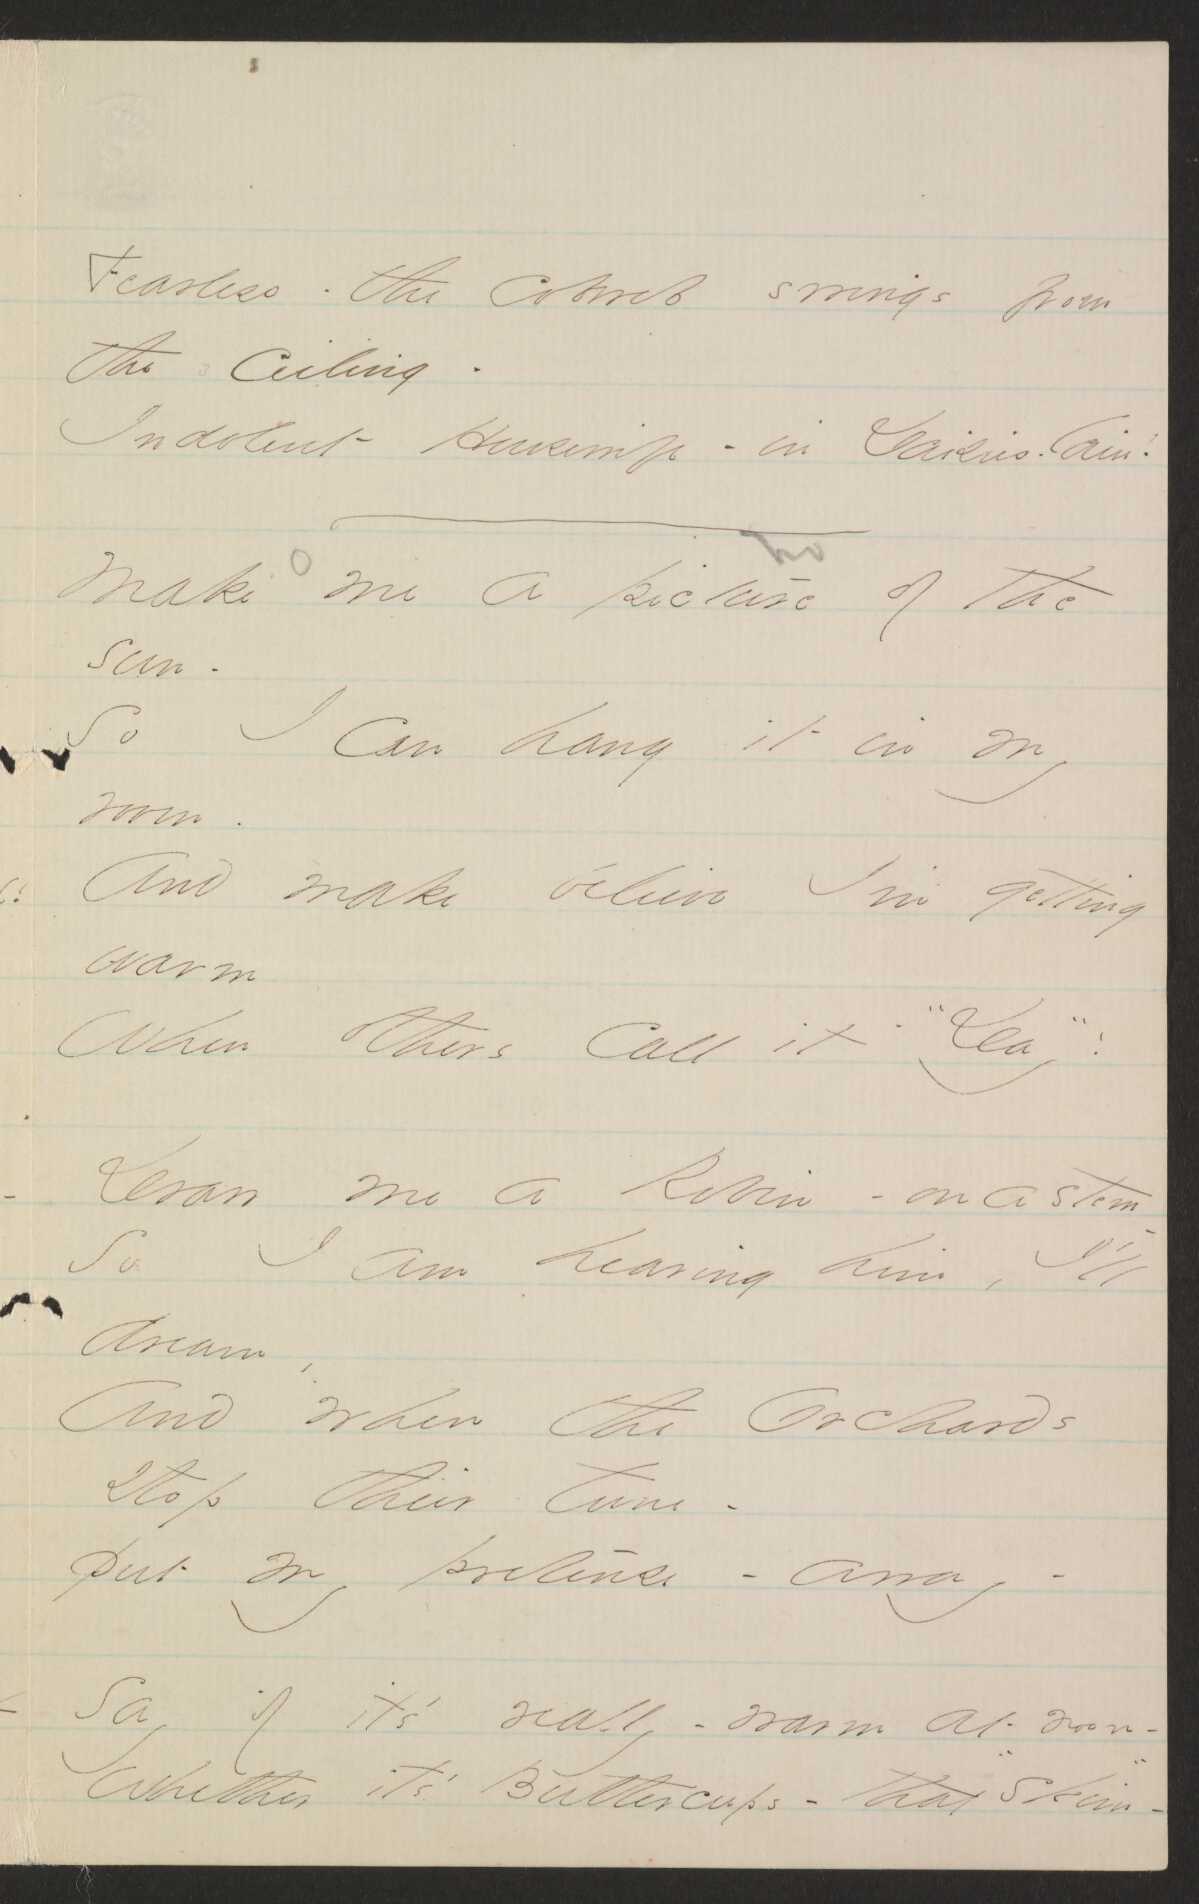 Fearless - the Cobweb swings from
the Ceiling -
Indolent Housewife - in Daisies - lain!
Make me a picture of the
sun -
So I can hang it in my
room.
And make believe I'm getting
warm
When others call it "Day"!
Draw me a Robin - on a stem -
So I am hearing him, I'll
dream,
And when the Orchards
stop their tune -
Put my pretense - away -
Say if it's really - warm at noon -
Whether it's Buttercups - that "skim" -